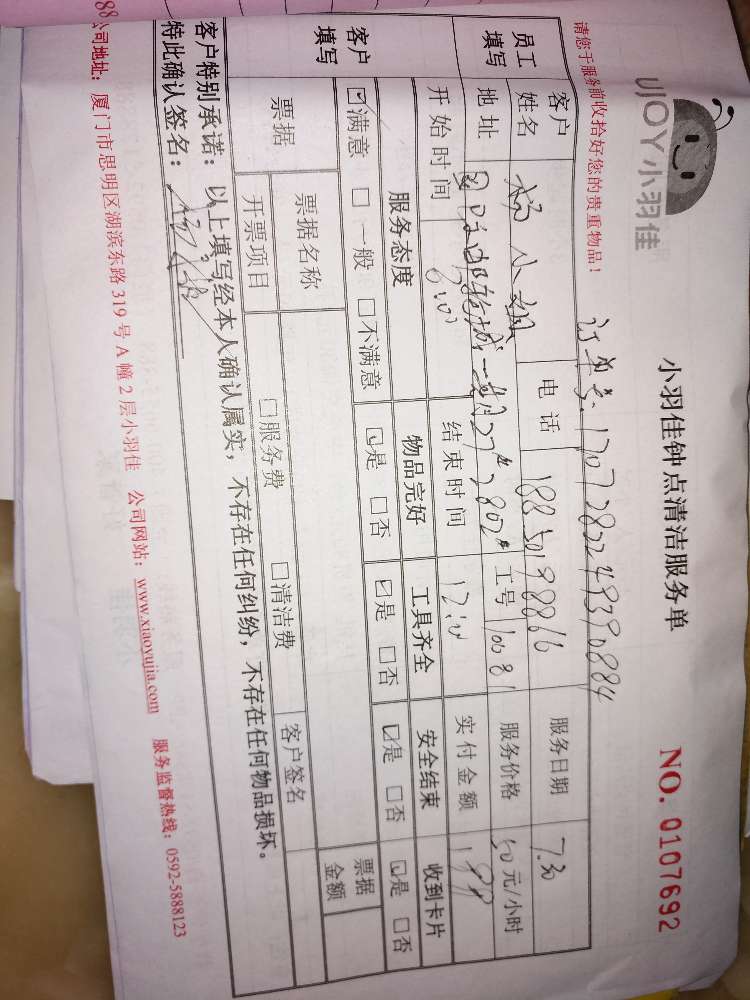 UJOY小羽佳
小羽佳钟点清洁服务单
NO. 0107692
请您于服务前收拾好您的贵重物品！
订单号: 1707282248390884
员工填写
客户姓名 杨小姐 电话 18850198866 服务日期 7.30
地址 一期27#2802# 工号 10081 服务价格 50元/小时
开始时间 结束时间 12:00 实付金额 188
客户填写
服务态度 物品完好 工具齐全 安全结束 收到卡片
☑满意 □一般 □不满意 ☑是 □否 ☑是 □否 ☑是 □否 ☑是 □否
票据 票据名称 票据金额
开票项目 □服务费 □清洁费 客户签名
客户特别承诺：以上填写经本人确认属实，不存在任何纠纷，不存在任何物品损坏。
特此确认签名：
公司地址：厦门市思明区湖滨东路319号A幢2层小羽佳 公司网站：www.xiaoyujia.com 服务监督热线：0592-5888123